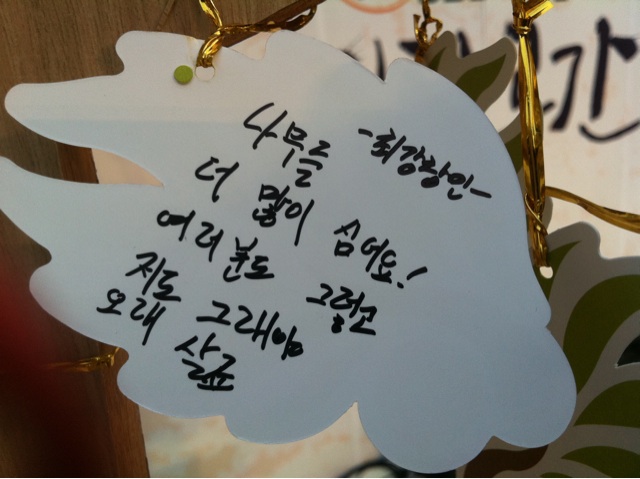 나무를 -최강창민-
더 많이 심어요!
여러분도 그렇고
저도 그래야
오래 살죠